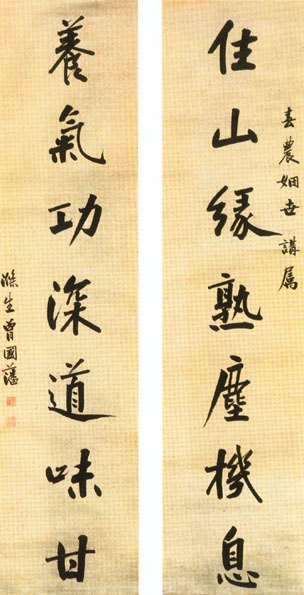 春農姻世講属
住山緣熟塵機息
養氣功深道味甘
滌生曾國藩